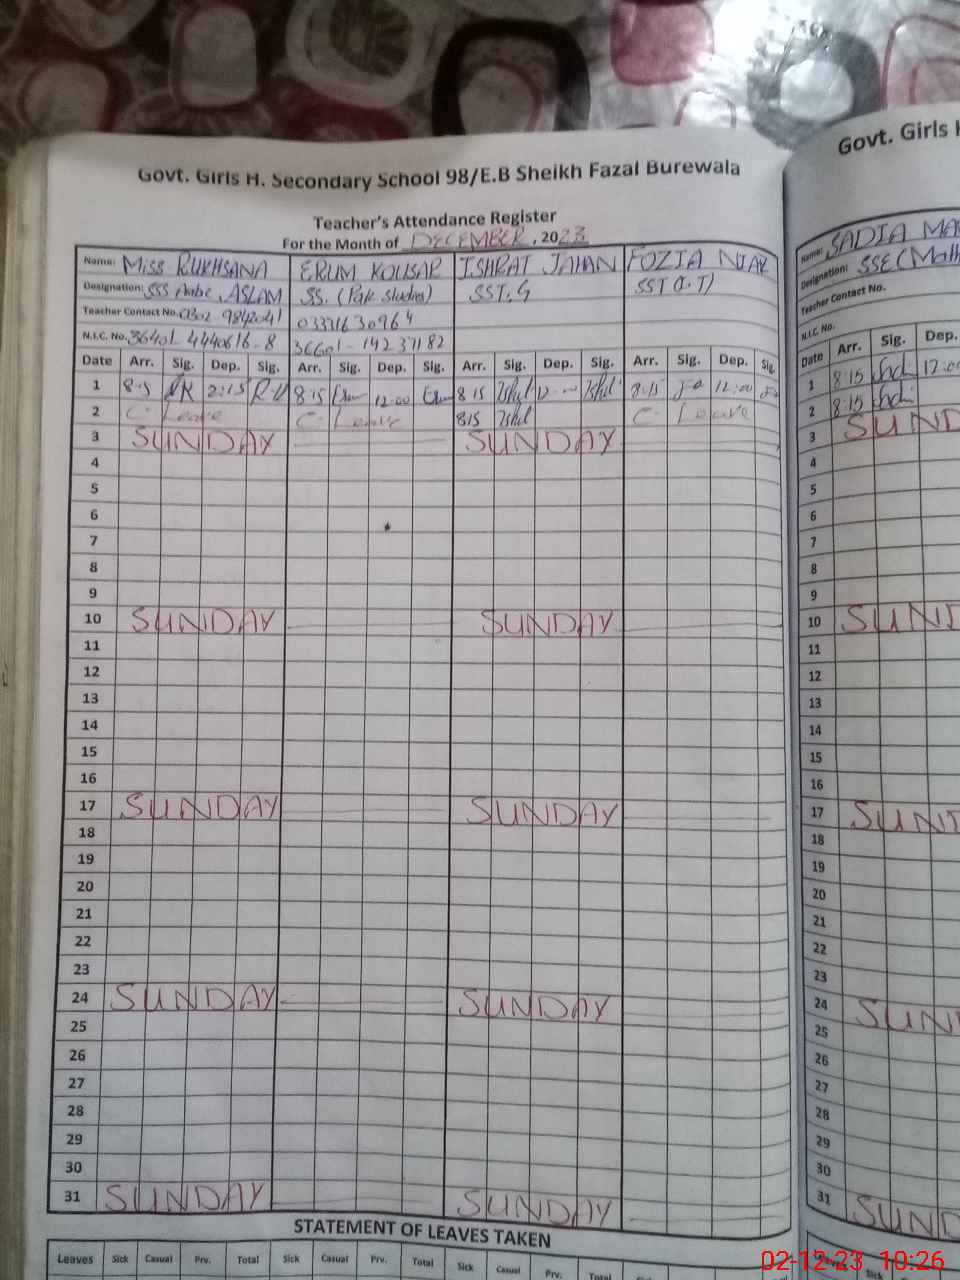 Govt. Girls H. Secondary School 98/E.B Sheikh Fazal Burewala
Teacher's Attendance Register
For the Month of DECEMBER, 2023
Name: Miss RUKHSANA ERUM KOUSAR ISHRAT JAHAN FOZIA NIAZ
Designation: SSS ASLAM SS. (Pak studies) SST.G SST (I.T)
Teacher Contact No. 0302 9842041
N.I.C. No.
Date Arr. Sig. Dep. Sig. Arr. Sig. Dep. Sig. Arr. Sig. Dep. Sig. Arr. Sig. Dep. Sig.
1 2:15 8:15 12:00 8 15 8:15 12:00
2 C- Leave C- Leave 8 15 C- Leave
3 SUNDAY SUNDAY
4
5
6
7
8
9
10 SUNDAY SUNDAY
11
12
13
14
15
16
17 SUNDAY SUNDAY
18
19
20
21
22
23
24 SUNDAY SUNDAY
25
26
27
28
29
30
31 SUNDAY SUNDAY
STATEMENT OF LEAVES TAKEN
Leaves Sick Casual Prv. Total Sick Casual Prv. Total Sick Casual Prv. Total
Govt. Girls
Name: SADIA
Designation: SSE (Math
Teacher Contact No.
N.I.C. No.
Date Arr. Sig. Dep.
1 8:15 12:00
2 8:15
3 SUND
4
5
6
7
8
9
10 SUND
11
12
13
14
15
16
17 SUND
18
19
20
21
22
23
24 SUN
25
26
27
28
29
30
31 SUND
Sick
02-12-23 10:26